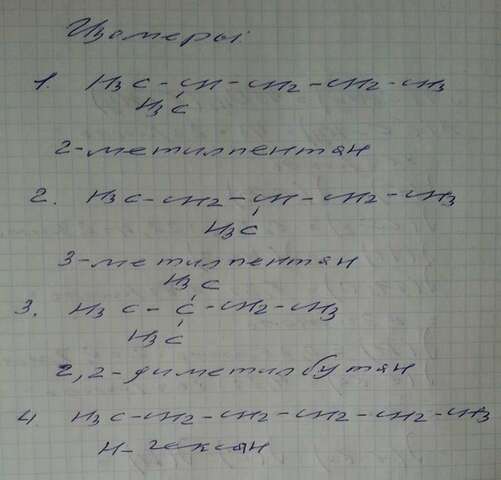 Изомеры:
1. H3C-CH-CH2-CH2-CH3
H3C
2-метилпентан
2. H3C-CH2-CH-CH2-CH3
H3C
3-метилпентан
H3C
3. H3C-C-CH2-CH3
H3C
2,2-диметилбутан
4 H3C-CH2-CH2-CH2-CH2-CH3
Н-гексан